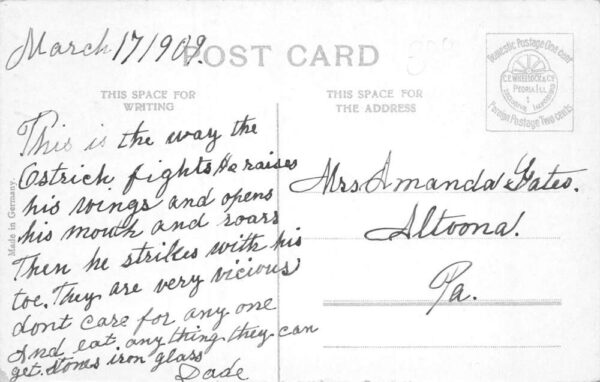 March 17/1909.
POST CARD
THIS SPACE FOR
WRITING
THIS SPACE FOR
THE ADDRESS
Domestic Postage One cent
C.E. WHEELOCK & CY
PEORIA ILL
Foreign Postage Two cents
Made in Germany.
This is the way the
Ostrich fights He raises
his wings and opens
his mouth and roars
Then he strikes with his
toe. They are very vicious
dont care for any one
And eat any thing they can
get. Stones iron glass
Dade
Mrs Amanda Yates.
Altoona.
Pa.